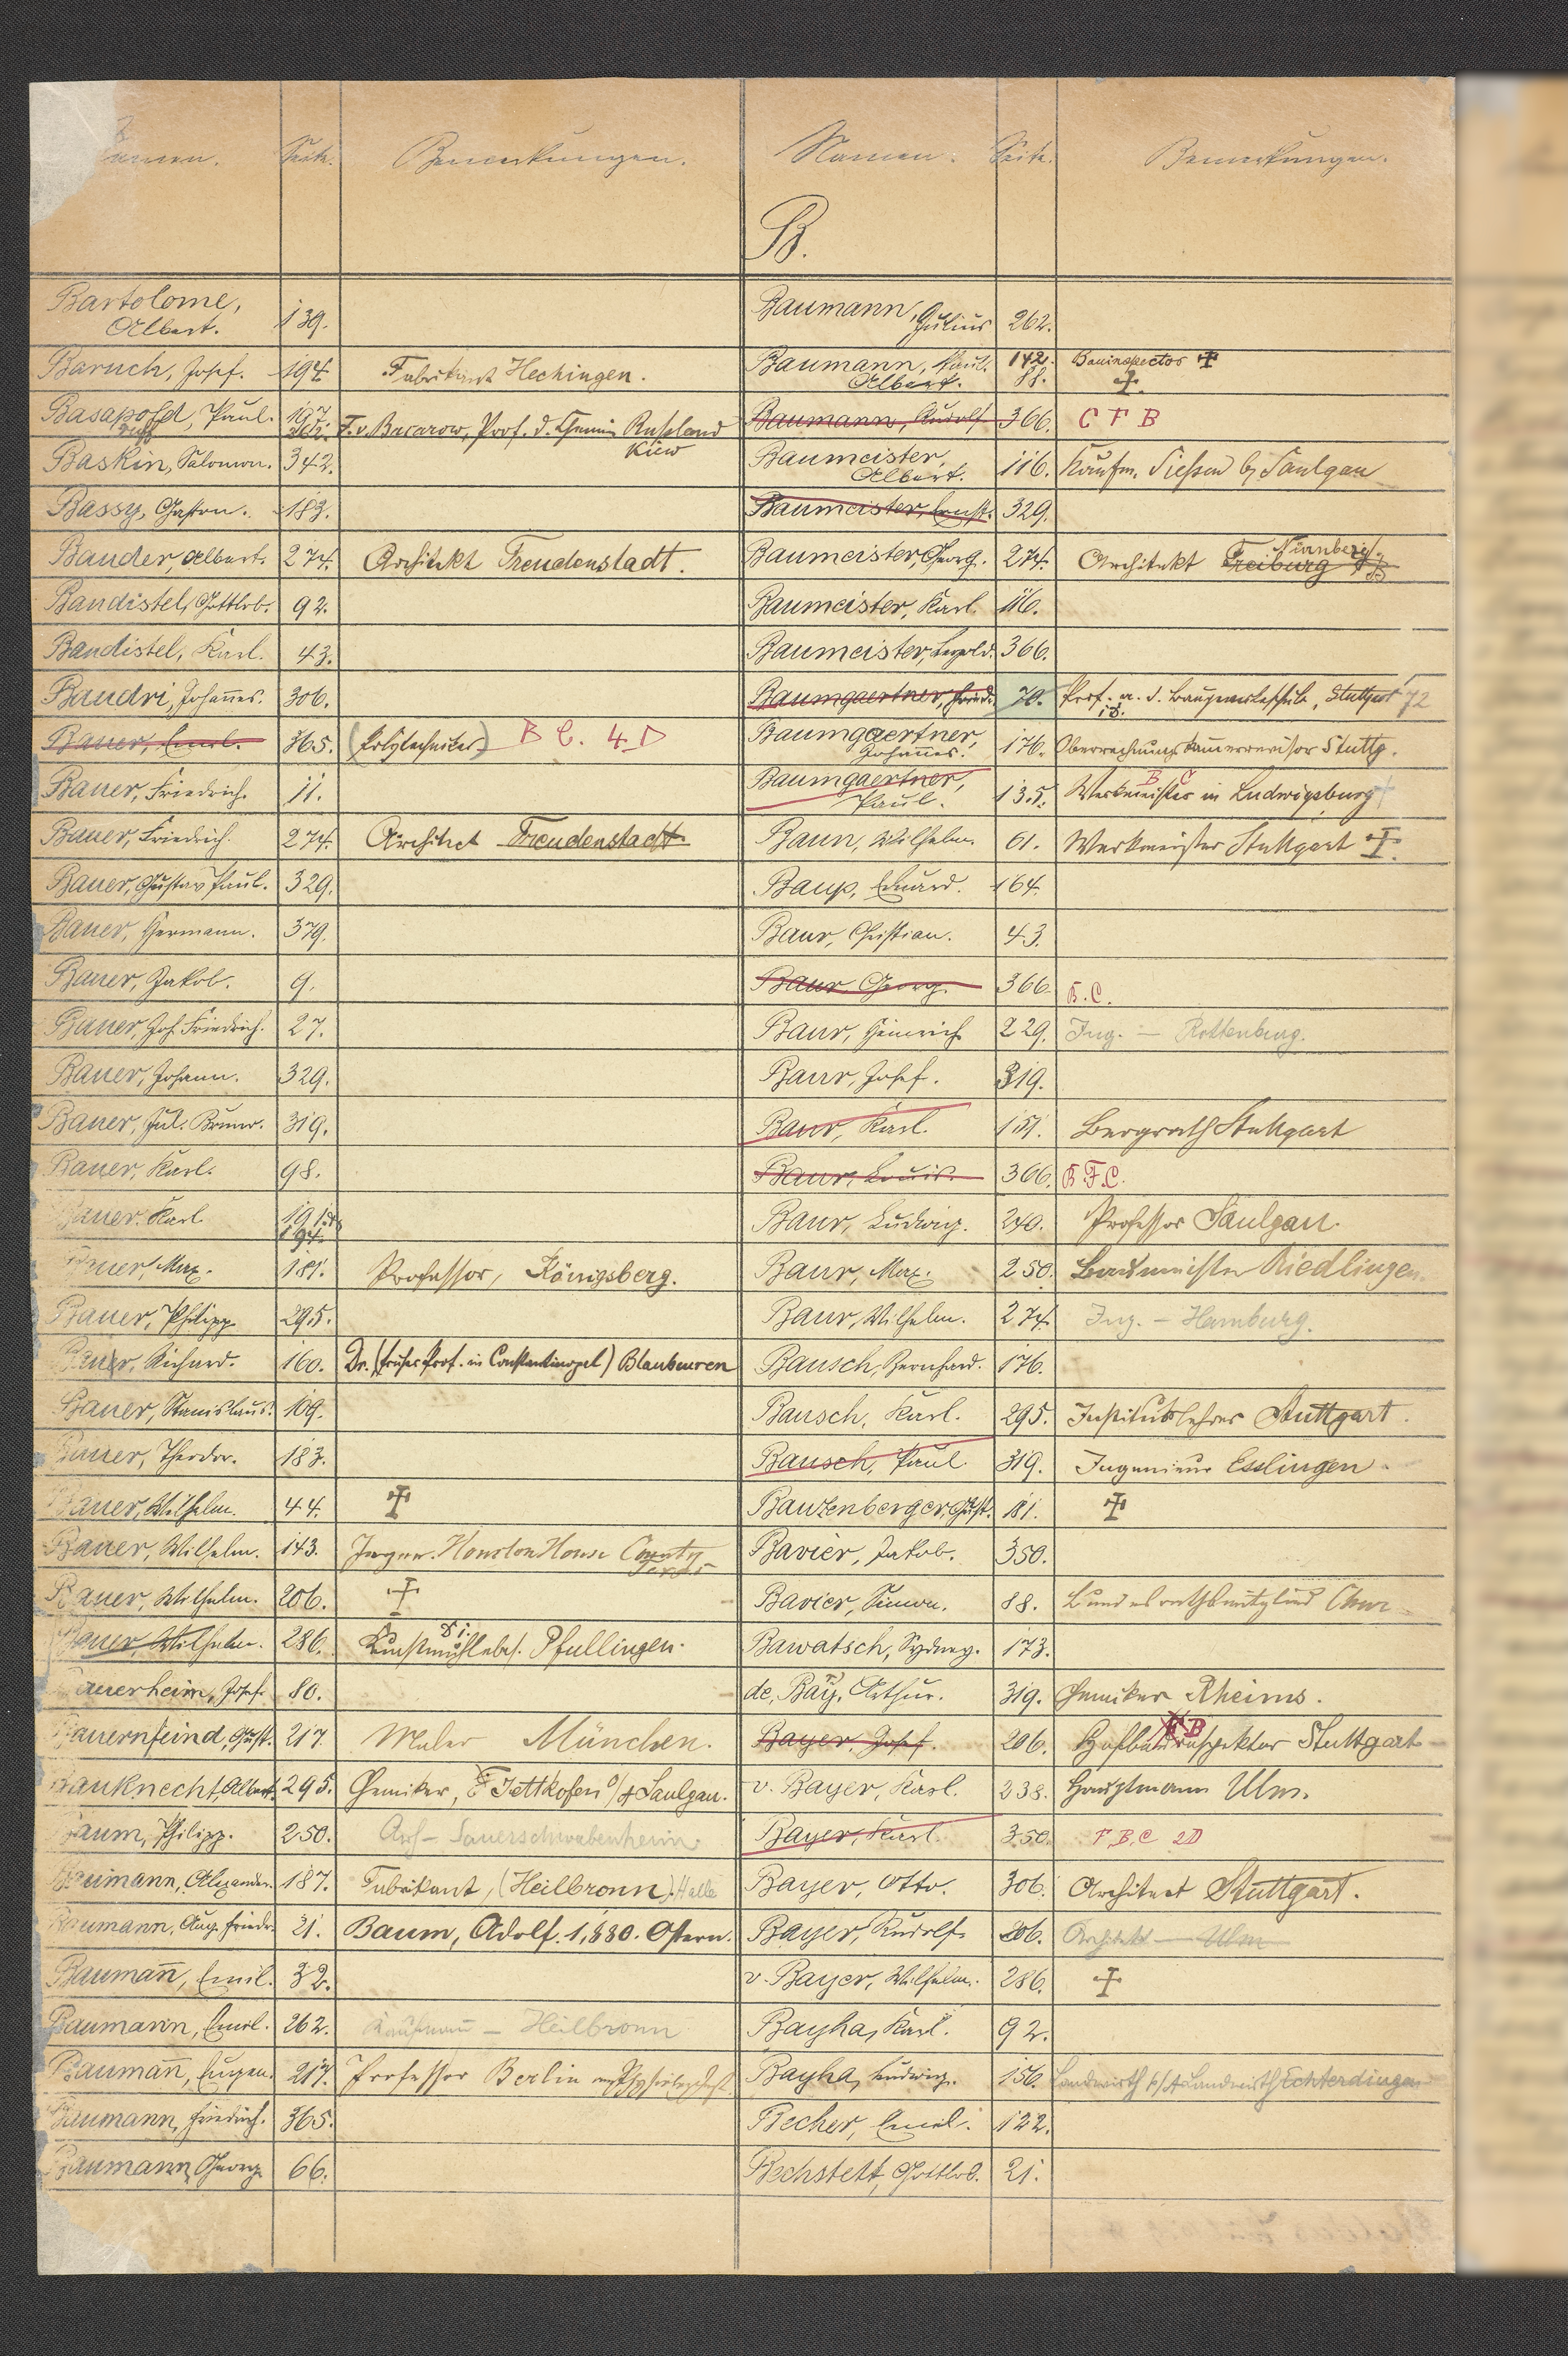 Namen. Seite. Bemerkungen.
Bartolome,
Albert. 139.
Baruch, Josef. 194. Fabrikant Hechingen.
Basapold, Paul. 197.
F. v. Bacarow, Prof. d. Chemie Rußland
Kiew
Baskin, Salomon. 342.
Bassy, Gaston. 183.
Bauder, Albert. 274. Architekt Freudenstadt.
Baudistel, Gottlob. 92.
Baudistel, Karl. 43.
Baudri, Johannes. 306.
Bauer, Emil. 365. (Polytechniker) B C. 4 D
Bauer, Friedrich. 11.
Bauer, Friedrich. 274. Architect Freudenstadt
Bauer, Gustav Paul. 329.
Bauer, Hermann. 379.
Bauer, Jakob. 9.
Bauer, Joh. Friedrich. 27.
Bauer, Johann. 329.
Bauer, Jul. Bruno. 319.
Bauer, Karl. 98.
Bauer, Karl 191.
194.
Bauer, Max. 181. Professor, Königsberg.
Bauer, Philipp. 295.
Bauer, Richard. 160. Dr. (früher Prof. in Constantinopel) Blaubeuren
Bauer, Stanislaus. 109.
Bauer, Theodor. 183.
Bauer, Wilhelm. 44. ✝
Bauer, Wilhelm. 143. Ingen. Houston House County
Texas
Bauer, Wilhelm. 206. ✝
Bauer, Wilhelm. 286. Kunstmühlebes. Pfullingen.
Bauerheim, Josef. 80.
Bauernfeind, Gust. 217. Maler München.
Bauknecht, Albert. 295. Chemiker, Jettkofen O/A Saulgau.
Baum, Philipp. 250. Arch - Sauerschwabenheim.
Baumann, Alexander. 187. Fabrikant, (Heilbronn) Halle
Baumann, Aug. Friedr. 21. Baum, Adolf. 1,880. Ostern.
Baumañ, Emil. 32.
Baumann, Emil. 262. Kaufmann - Heilbronn
Baumañ, Eugen. 217. Professor Berlin
Baumann, Friedrich. 365.
Baumann, Georg. 66.
Namen. Seite. Bemerkungen.
B.
Baumann,
Julius 262.
Baumann, Paul. 142. Bauinspector ✝
Albert. 88. ✝
Baumann, Rudolf 366. C F B
Baumeister,
Albert. 116. Kaufm. Sießen b/ Saulgau
Baumeister, Ernst. 329.
Baumeister, Georg. 274. Architekt Freiburg
Nürnberg.
Baumeister, Karl. 116.
Baumeister, Leopold. 366.
Baumgaertner, Fried. 70. Prof. a. d. Baugewerkschule, Stuttgart 72
Baumgaertner,
Johannes. 176. Oberrechnungskammerrevisor Stuttg.
Baumgaertner,
Paul. 135. Werkmeister in Ludwigsburg
B C
Baun, Wilhelm. 61. Werkmeister Stuttgart ✝
Baup, Eduard. 164.
Baur, Christian. 43.
Baur Georg. 366. B. C.
Baur, Heinrich 229. Ing. - Rottenburg.
Baur, Josef. 319.
Baur, Karl. 151. Bergrath Stuttgart
Baur, Louis. 366. B. F. C.
Baur, Ludwig. 240. Professor Saulgau.
Baur, Max. 250. Baumeister Riedlingen.
Baur, Wilhelm. 274. Ing. - Hamburg.
Bausch, Bernhard. 176.
Bausch, Karl. 295. Institutslehrer Stuttgart.
Bausch, Paul 319. Ingenieur Esslingen.
Bauzenberger, Gust. 181. ✝
Bavier, Jakob. 350.
Bavier, Simon. 88. Bundesrathsmitglied Chur
Bawatsch, Sydney. 173.
de Bay, Arthur. 319. Chemiker Rheims.
Bayer, Josef. 206. Hofbauinspektor Stuttgart
v. Bayer, Karl. 238. Hauptmann Ulm.
Bayer, Karl. 350. F. B. C 2D
Bayer, Otto. 306. Architect Stuttgart.
Bayer, Rudolf. 206. Architekt - Ulm
v. Bayer, Wilhelm. 286. ✝
Bayha, Karl. 92.
Bayha, Ludwig. 156. Landwirth Echterdingen
Becher, Emil. 122.
Bechstett, Gottlob. 21.